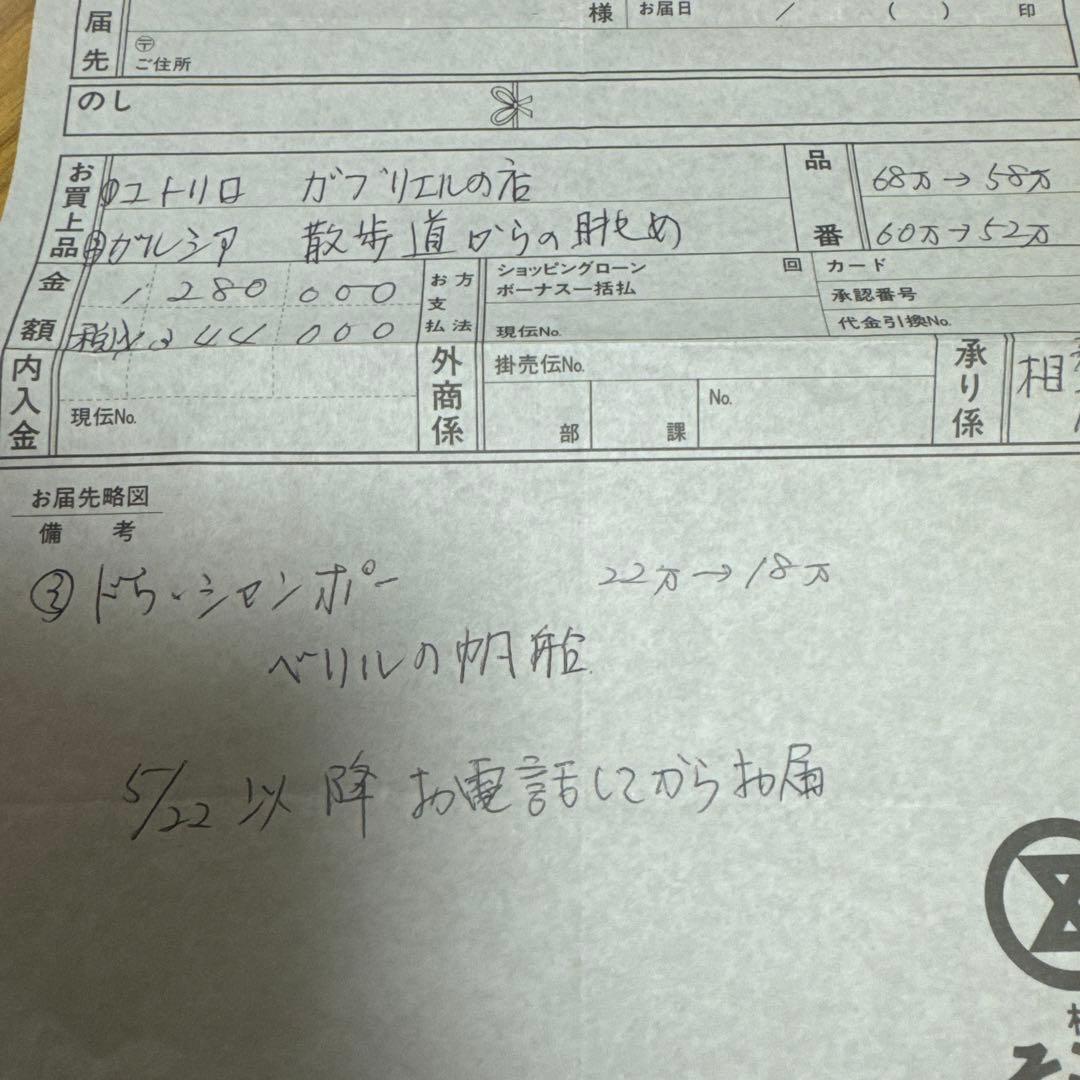 届先
様 お届日 / ( ) 印
〒
ご住所
のし
お買上品
①ユトリロ ガブリエルの店
②ガルシア 散歩道からの眺め
品番
68万→58万
60万→52万
金額
1 280 000
税込
000
お支払方法
ショッピングローン 回
ボーナス一括払
現伝No.
カード
承認番号
代金引換No.
内入金
現伝No.
外商係
掛売伝No.
部 課 No.
承り係
相
お届先略図
備考
③ドゥ・シャンポー 22万→18万
ベリルの帆船
5/22 以降 お電話してからお届